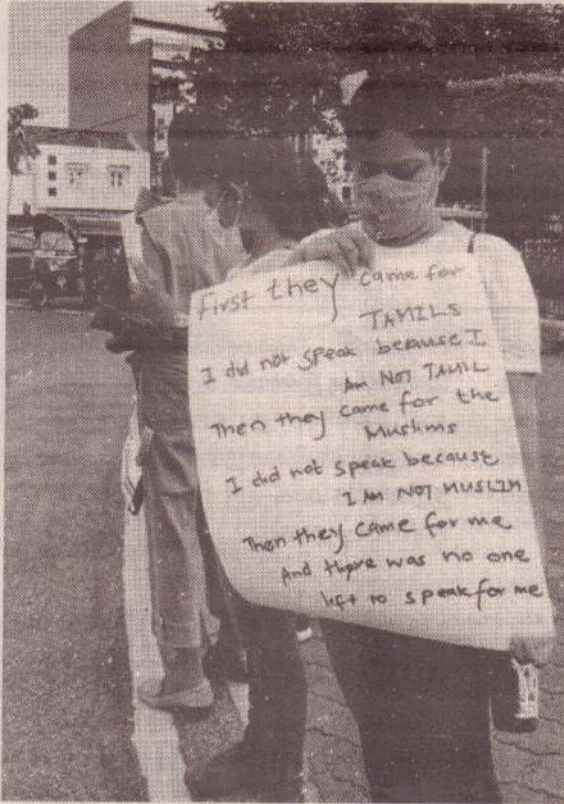 first they came for
TAMILS
I did not speak because I
Am Not TAMIL
Then they came for the
Muslims
I did not speak because
I AM NOT MUSLIM
Then they came for me
And there was no one
left to speak for me